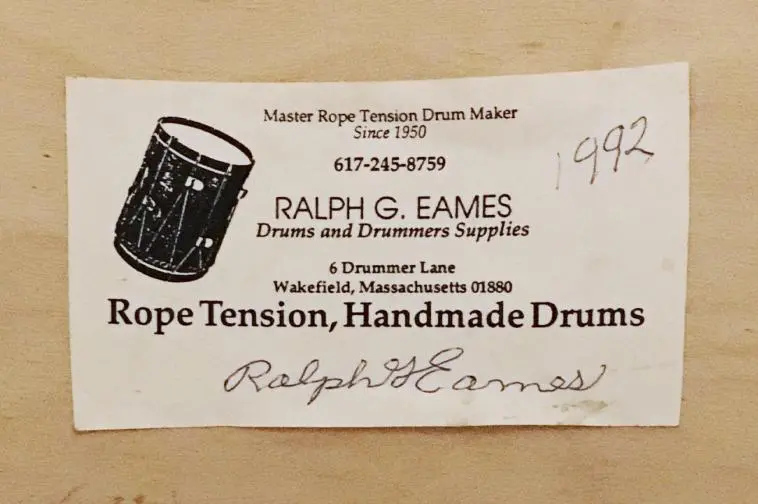 Master Rope Tension Drum Maker
Since 1950
1992
617-245-8759
RALPH G. EAMES
Drums and Drummers Supplies
6 Drummer Lane
Wakefield, Massachusetts 01880
Rope Tension, Handmade Drums
Ralph G Eames